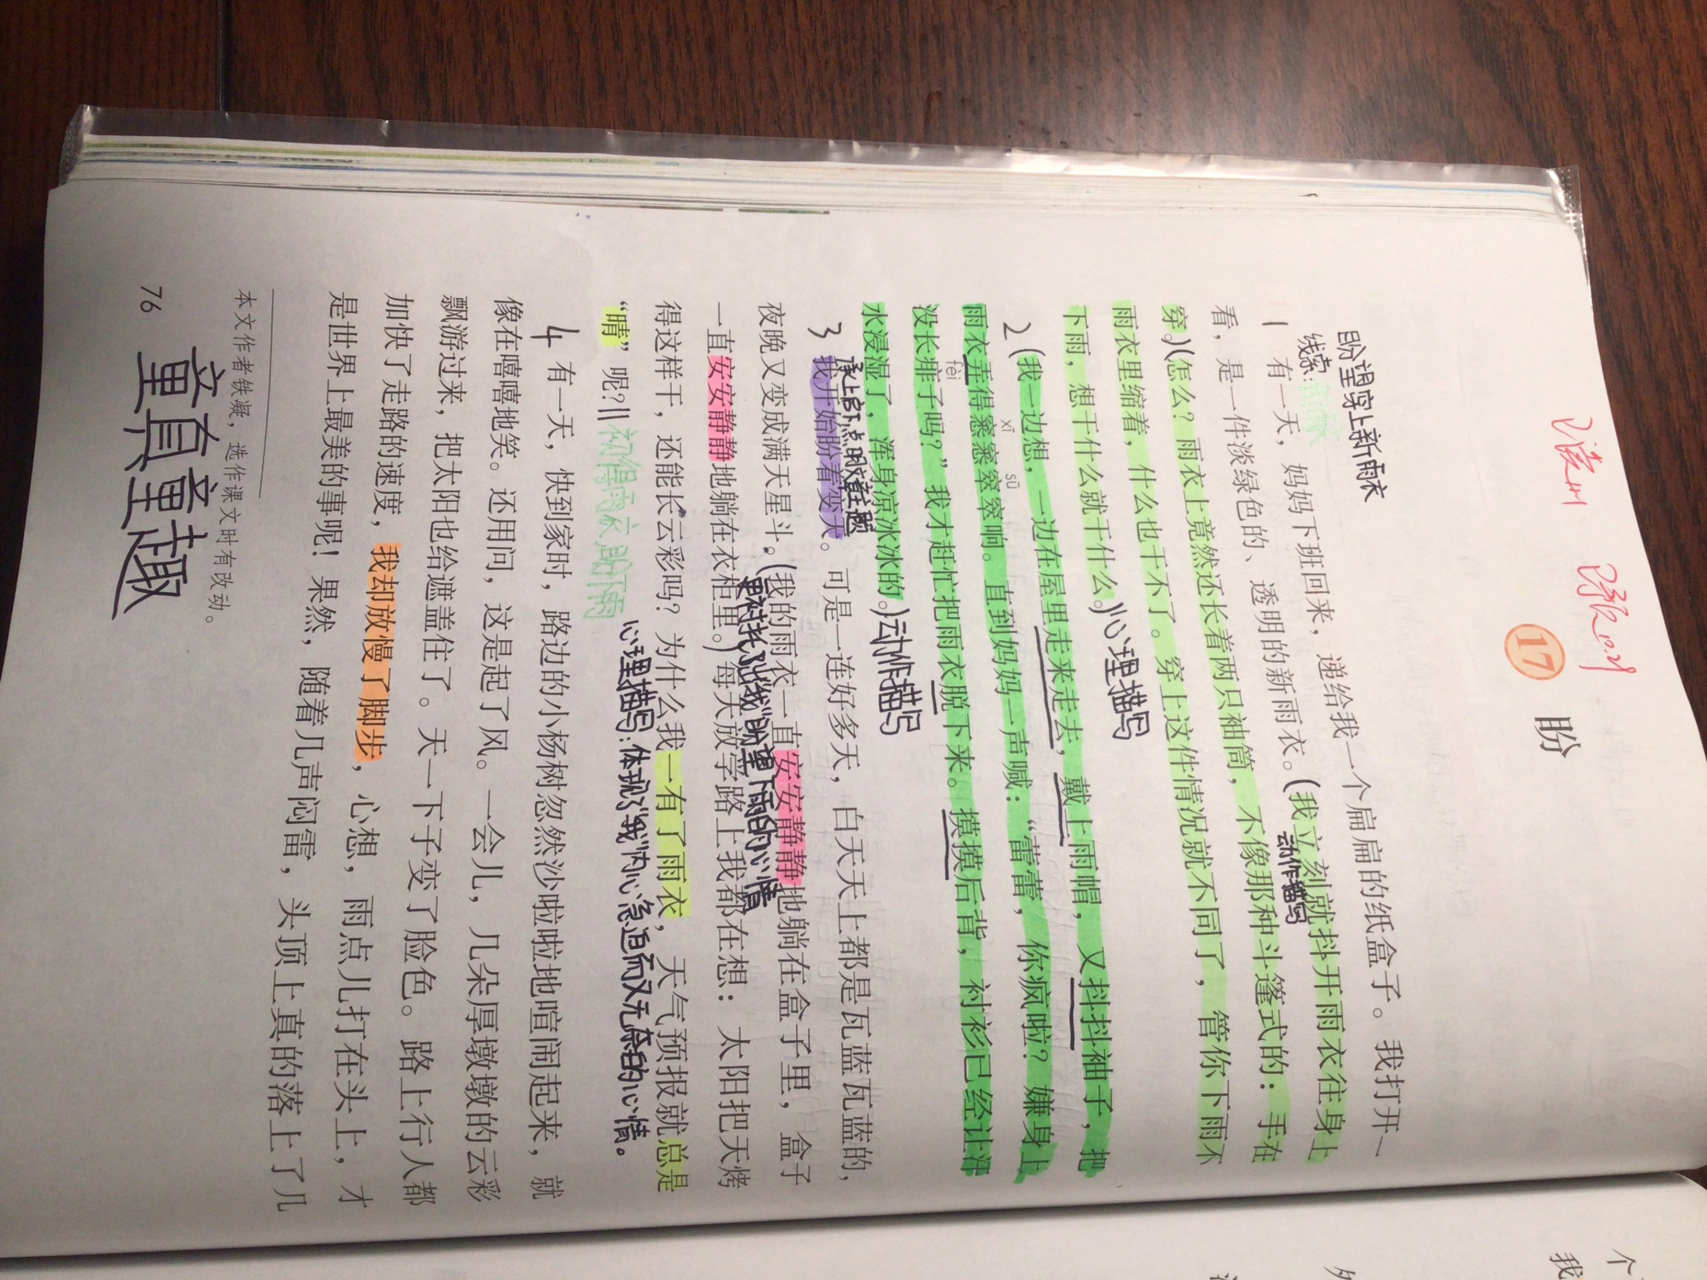 17 盼
盼望穿上新雨衣
线索：雨衣
1 有一天，妈妈下班回来，递给我一个扁扁的纸盒子。我打开一
看，是一件淡绿色的、透明的新雨衣。(我立刻就抖开雨衣往身上
动作描写
穿。)(怎么？雨衣上竟然还长着两只袖筒，不像那种斗篷式的：手在
雨衣里缩着，什么也干不了。穿上这件情况就不同了，管你下雨不
下雨，想干什么就干什么。)心理描写
2 (我一边想，一边在屋里走来走去，戴上雨帽，又抖抖袖子，把
xī sū
雨衣弄得窸窸窣窣响。直到妈妈一声喊：“蕾蕾，你疯啦？嫌身上
fèi
没长痱子吗？”我才赶忙把雨衣脱下来。摸摸后背，衬衫已经让汗
水浸湿了，浑身凉冰冰的。)动作描写
承上启下,点明文章主题
3 我开始盼着变天。可是一连好多天，白天天上都是瓦蓝瓦蓝的，
夜晚又变成满天星斗。(我的雨衣一直安安静静地躺在盒子里，盒子
更衬托了出我盼望下雨的心情
一直安安静静地躺在衣柜里。)每天放学路上我都在想：太阳把天烤
得这样干，还能长云彩吗？为什么我一有了雨衣，天气预报就总是
“晴”呢？||初得雨衣 盼下雨
心理描写：体现了“我”内心急迫而又无奈的心情。
4 有一天，快到家时，路边的小杨树忽然沙啦啦地喧闹起来，就
像在嘻嘻地笑。还用问，这是起了风。一会儿，几朵厚墩墩的云彩
飘游过来，把太阳也给遮盖住了。天一下子变了脸色。路上行人都
加快了走路的速度，我却放慢了脚步，心想，雨点儿打在头上，才
是世界上最美的事呢！果然，随着几声闷雷，头顶上真的落上了几
本文作者铁凝，选作课文时有改动。
76
童真童趣